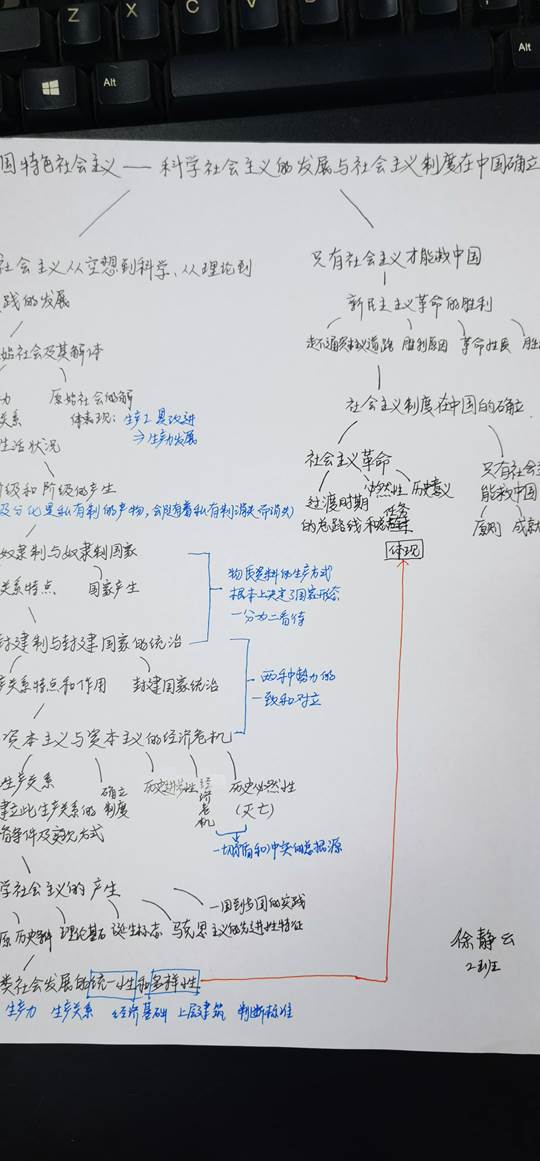 Z
X
C
V
Alt
Alt
国特色社会主义 —— 科学社会主义的发展与社会主义制度在中国确立
社会主义从空想到科学、从理论到
践的发展
始社会及其解体
力
关系
生活状况
原始社会的解
体表现：生产工具改进
→生产力发展
阶级和阶级的产生
是私有制的产物，会随着私有制消失而消失)
奴隶制与奴隶制国家
关系特点
国家产生
物质资料的生产方式
根本上决定了国家形态
一分为二看待
封建制与封建国家的统治
产关系特点和作用
封建国家统治
两种势力的
一致和对立
资本主义与资本主义的经济危机
生产关系
建立此生产关系的
条件及剥削方式
确立
制度
历史进步性
经济危机
历史必然性
(灭亡)
一切矛盾和冲突的总根源
学社会主义的产生
一国到多国的实践
历史
理论基石
诞生标志
马克思主义的先进性特征
类社会发展的统一性和多样性
生产力
生产关系
经济基础
上层建筑
判断标准
只有社会主义才能救中国
新民主主义革命的胜利
走不通资本主义道路
胜利原因
革命性质
胜
社会主义制度在中国的确立
社会主义革命
过渡时期
的总路线和
必然性
任务
历史意义
体现
只有社会主
能救中国
原则
成就
徐静云
2班